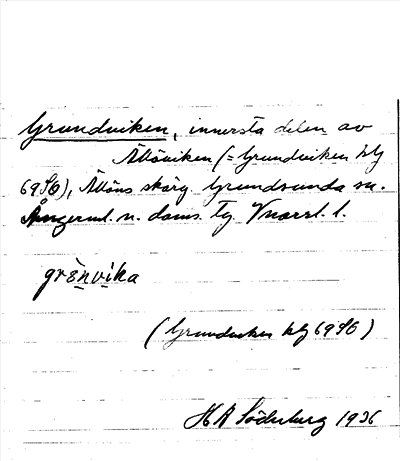 Grundviken, innersta delen av
Älöviken (= Grundviken kbl
69SO), Älöns skärg. Grundsunda sn.
Ångerml. n. doms. tg. Vnorrl. l.
grènvika
(Grundviken kbl 69SO)
HA Söderberg 1936